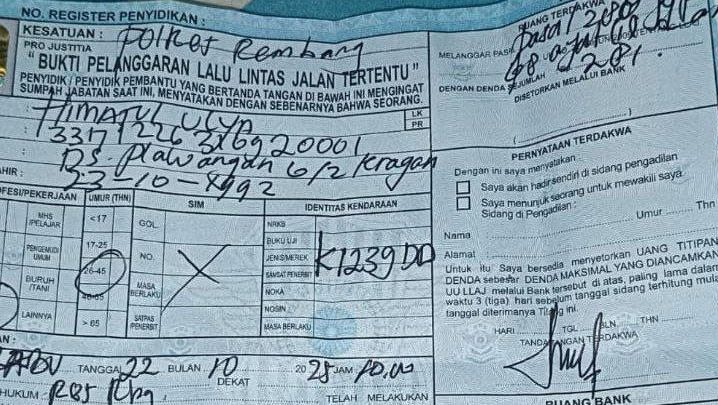 NO. REGISTER PENYIDIKAN :
KESATUAN : Polres Rembang
PRO JUSTITIA
" BUKTI PELANGGARAN LALU LINTAS JALAN TERTENTU "
PENYIDIK / PENYIDIK PEMBANTU YANG BERTANDA TANGAN DI BAWAH INI MENGINGAT
SUMPAH JABATAN SAAT INI, MENYATAKAN DENGAN SEBENARNYA BAHWA SEORANG.
HIMATUL ULYA
LK
PR
Ds. Plawangan 6/2 Kragan
AHIR :
23-10-1992
OFESI/PEKERJAAN
UMUR (THN)
SIM
IDENTITAS KENDARAAN
MHS /PELAJAR
<17
GOL.
NRKB
PENGEMUDI UMUM
17-25
NO.
BUKU UJI
JENIS/MEREK
K1239DD
BURUH /TANI
26-45
MASA BERLAKU
SAMSAT PENERBIT
NOKA
46-65
LAINNYA
> 65
SATPAS PENERBIT
NOSIN
MASA BERLAKU
AN :
TANGGAL 22 BULAN 10 2025 JAM 10.00
HUKUM :
DEKAT
TELAH MELAKUKAN
RUANG TERDAKWA
MELANGGAR PASAL
Pasal 280
281.
DENGAN DENDA SEJUMLAH
DISETORKAN MELALUI BANK
( )
PERNYATAAN TERDAKWA
Dengan ini saya menyatakan :
Saya akan hadir sendiri di sidang pengadilan
Saya menunjuk seorang untuk mewakili saya
Sidang di Pengadilan :
Nama
Umur Thn
Alamat
Untuk itu Saya bersedia menyetorkan UANG TITIPAN
DENDA sebesar DENDA MAKSIMAL YANG DIANCAMKAN
UU LLAJ melalui Bank tersebut di atas, paling lama dalam
waktu 3 (tiga) hari sebelum tanggal sidang terhitung mulai
tanggal diterimanya Tilang ini.
HARI TGL BLN. THN
TANDA TANGAN TERDAKWA
RUANG BANK